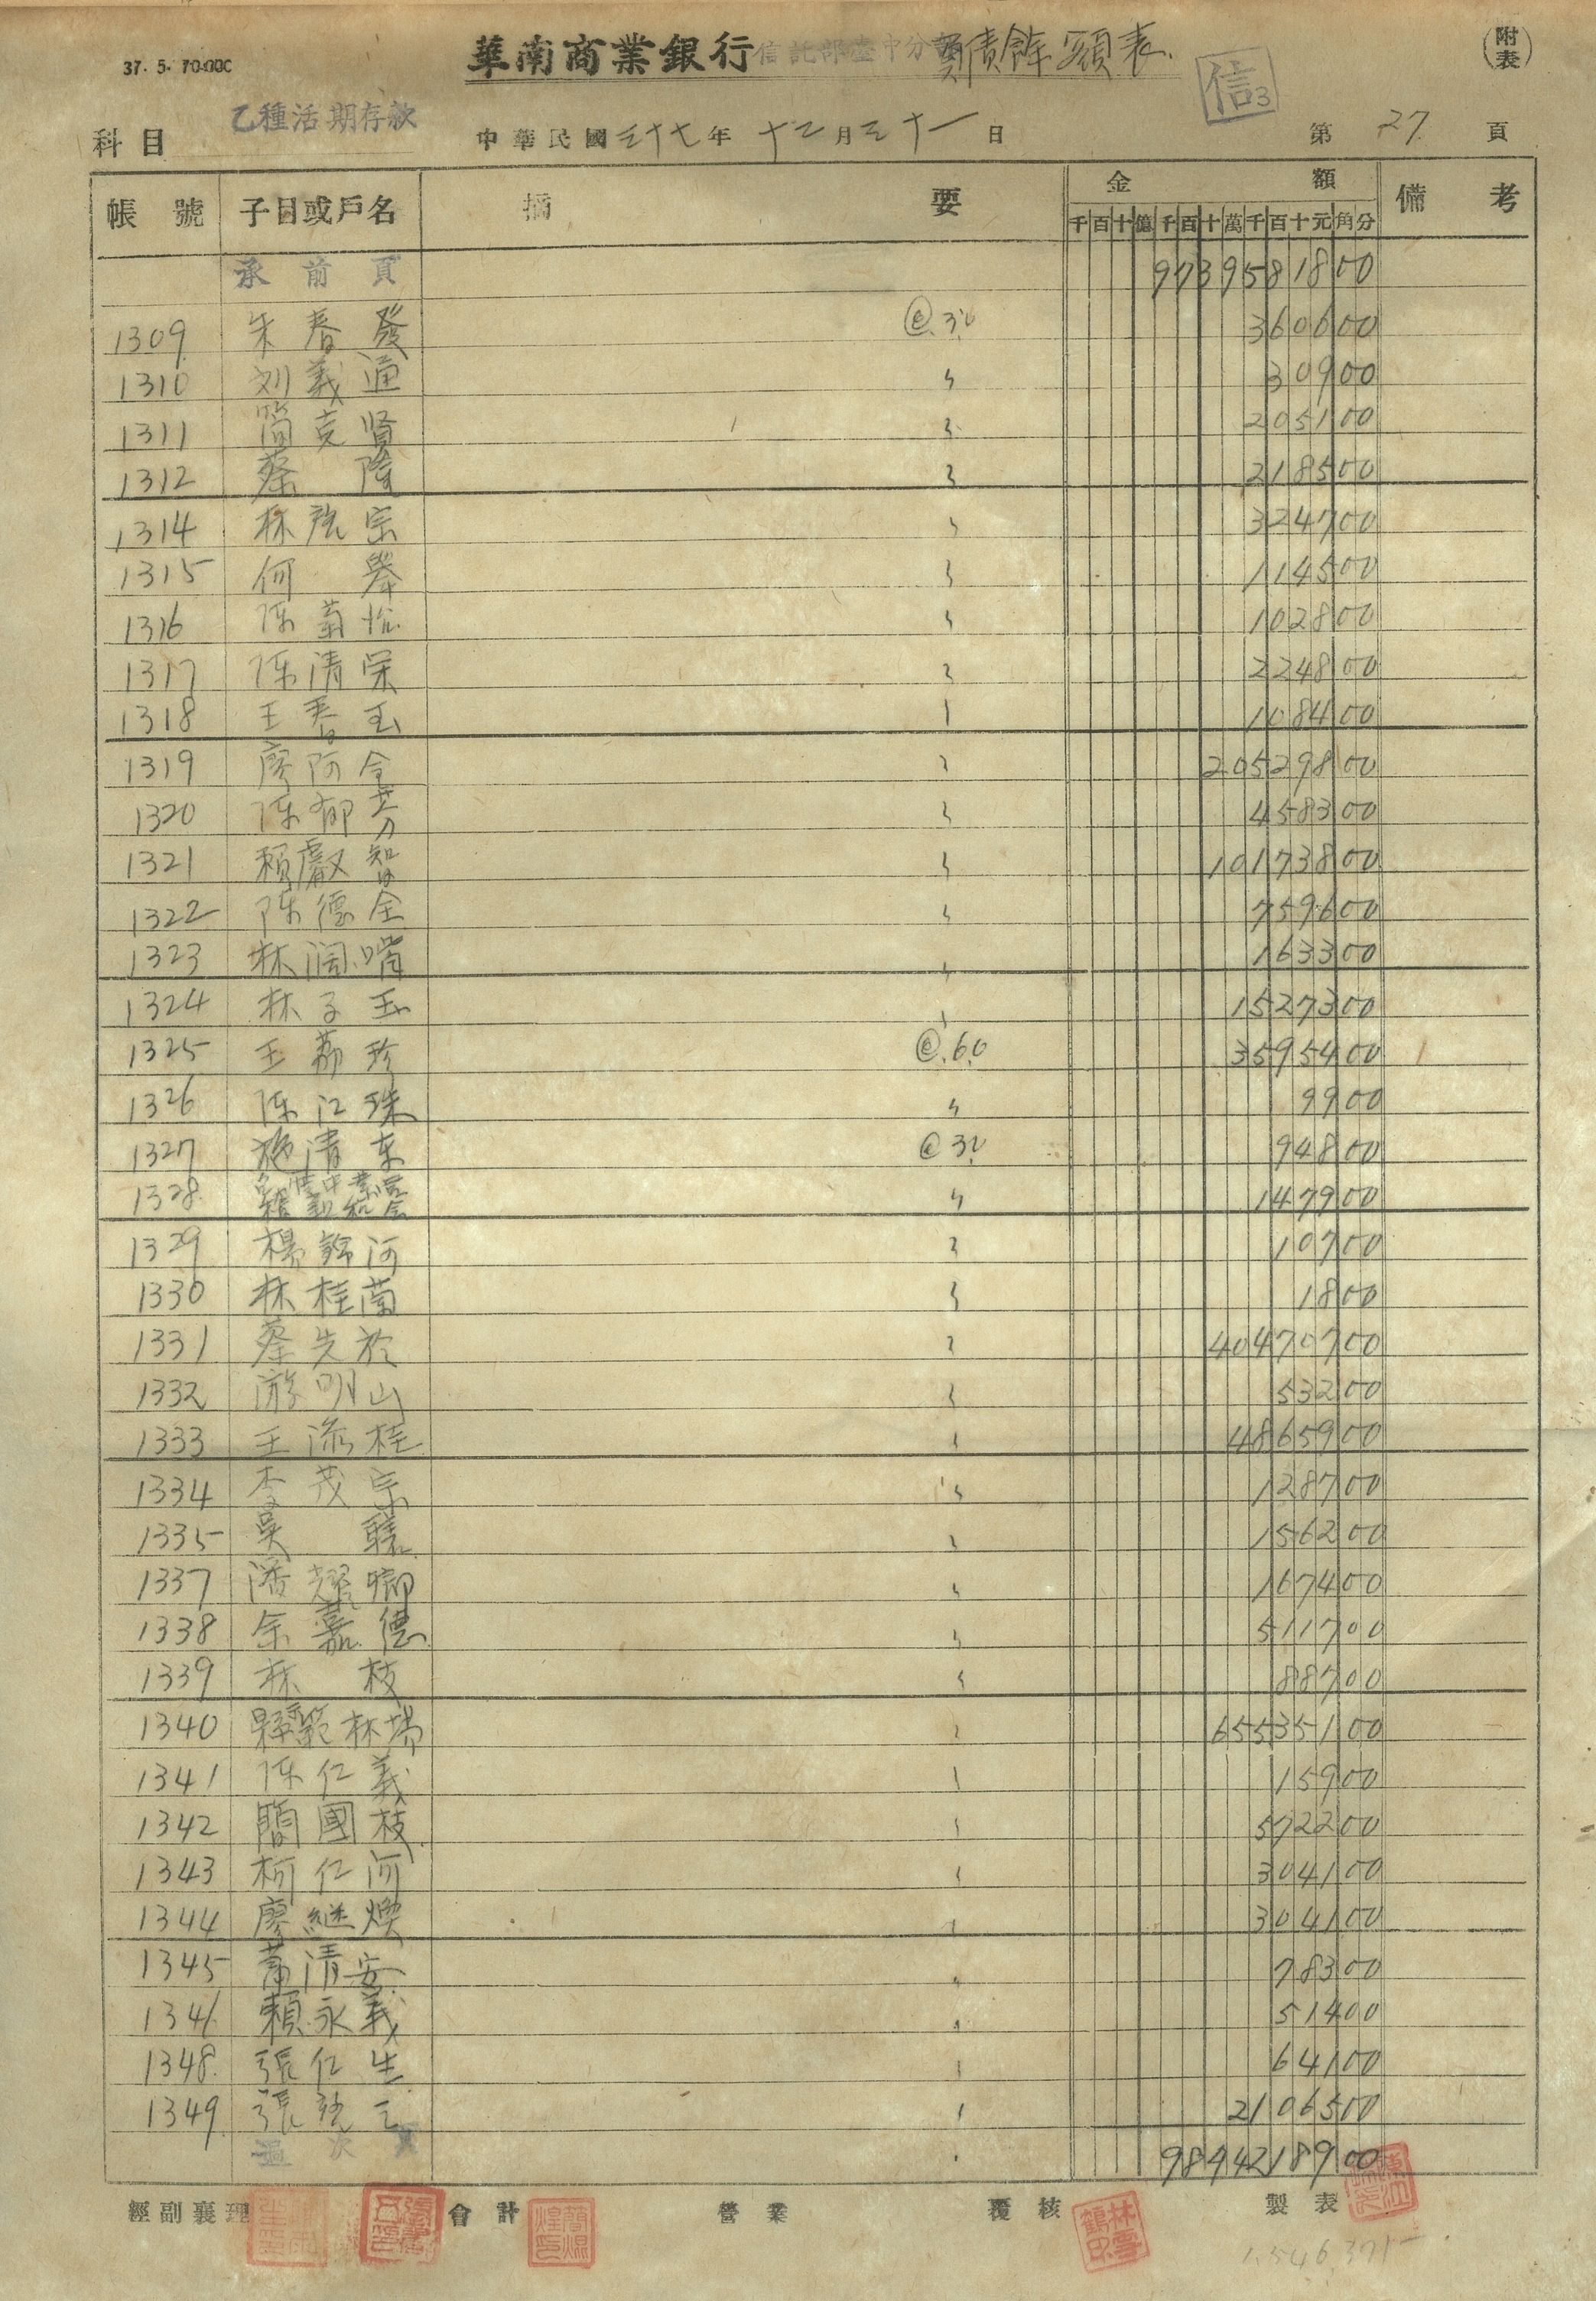 37. 5. 70.000
華南商業銀行信託部臺中分部負債餘額表
(附表)
信3
科目 乙種活期存款 中華民國三十七年十二月三十一日 第27頁
帳號 子目或戶名 摘要 金額 備考
千百十億千百十萬千百十元角分
承前頁 9739581800
1309 朱春發 @30 360600
1310 刘義通 〃 30900
1311 簡克賢 〃 205100
1312 蔡隆 〃 218500
1314 林 宗 〃 324700
1315 何舉 〃 114500
1316 陳菊 〃 102800
1317 陳清栄 〃 224800
1318 王春玉 〃 108400
1319 廖阿全 〃 20529800
1320 陳郁芬 〃 458300
1321 賴嚴智 〃 10173800
1322 陈德全 〃 759600
1323 林濶嘴 〃 163300
1324 林子玉 〃 1527300
1325 王 珍 @.60 3595400
1326 陳江珠 〃 9900
1327 施清東 @30 94800
1328 〃 147900
1329 楊錦河 〃 10700
1330 林桂蘭 〃 1800
1331 蔡先於 〃 40470700
1332 游明山 〃 53200
1333 王添桂 〃 4865900
1334 李茂宗 〃 128700
1335 吳 〃 156200
1337 潘耀卿 〃 167400
1338 余嘉德 〃 511700
1339 林枝 〃 88700
1340 縣 範林場 〃 65535100
1341 陳仁義 〃 15900
1342 簡國枝 〃 572200
1343 柯仁河 〃 304100
1344 廖継煥 〃 304100
1345 蕭清安 〃 78300
1346 賴永義 〃 51400
1348 張仁生 〃 64100
1349 張 三 〃 2106500
過次頁 9894218900
經副襄理 會計 營業 覆核 製表
林雪鶴印
1,546,371